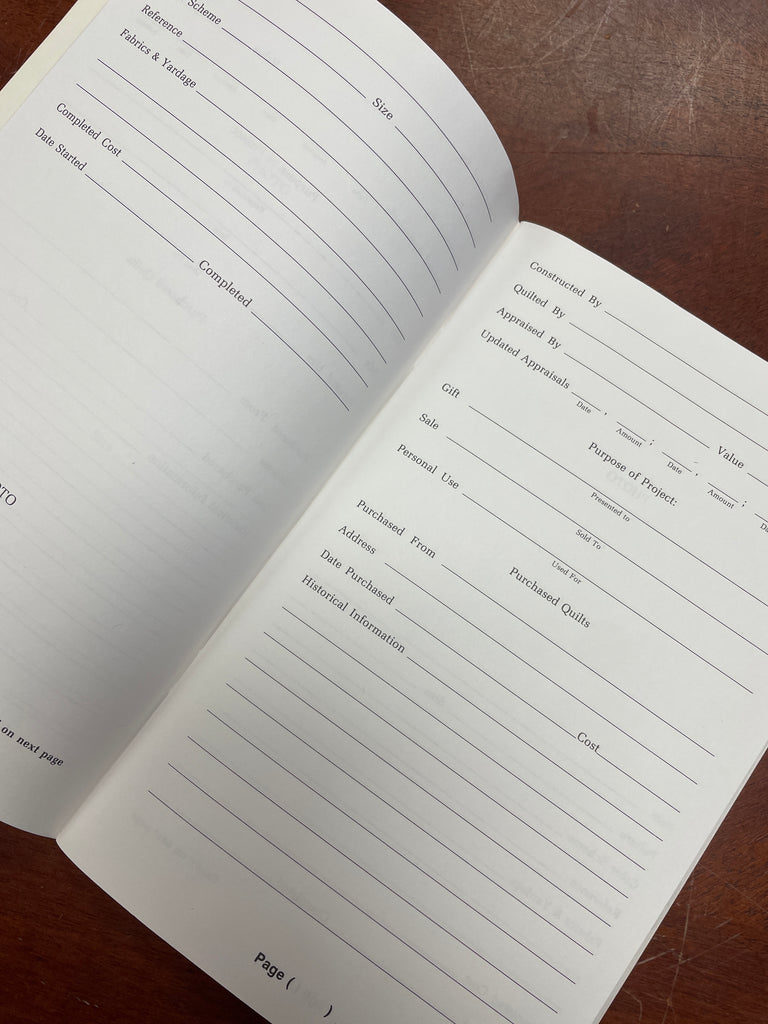 Scheme
Reference
Size
Fabrics & Yardage
Completed Cost
Date Started
Completed
on next page
Constructed By
Quilted By
Appraised By
Value
Updated Appraisals , ; , ;
Date Amount Date Amount
Purpose of Project:
Gift
Presented to
Sale
Sold To
Personal Use
Used For
Purchased Quilts
Purchased From
Address
Date Purchased
Cost
Historical Information
Page ( )